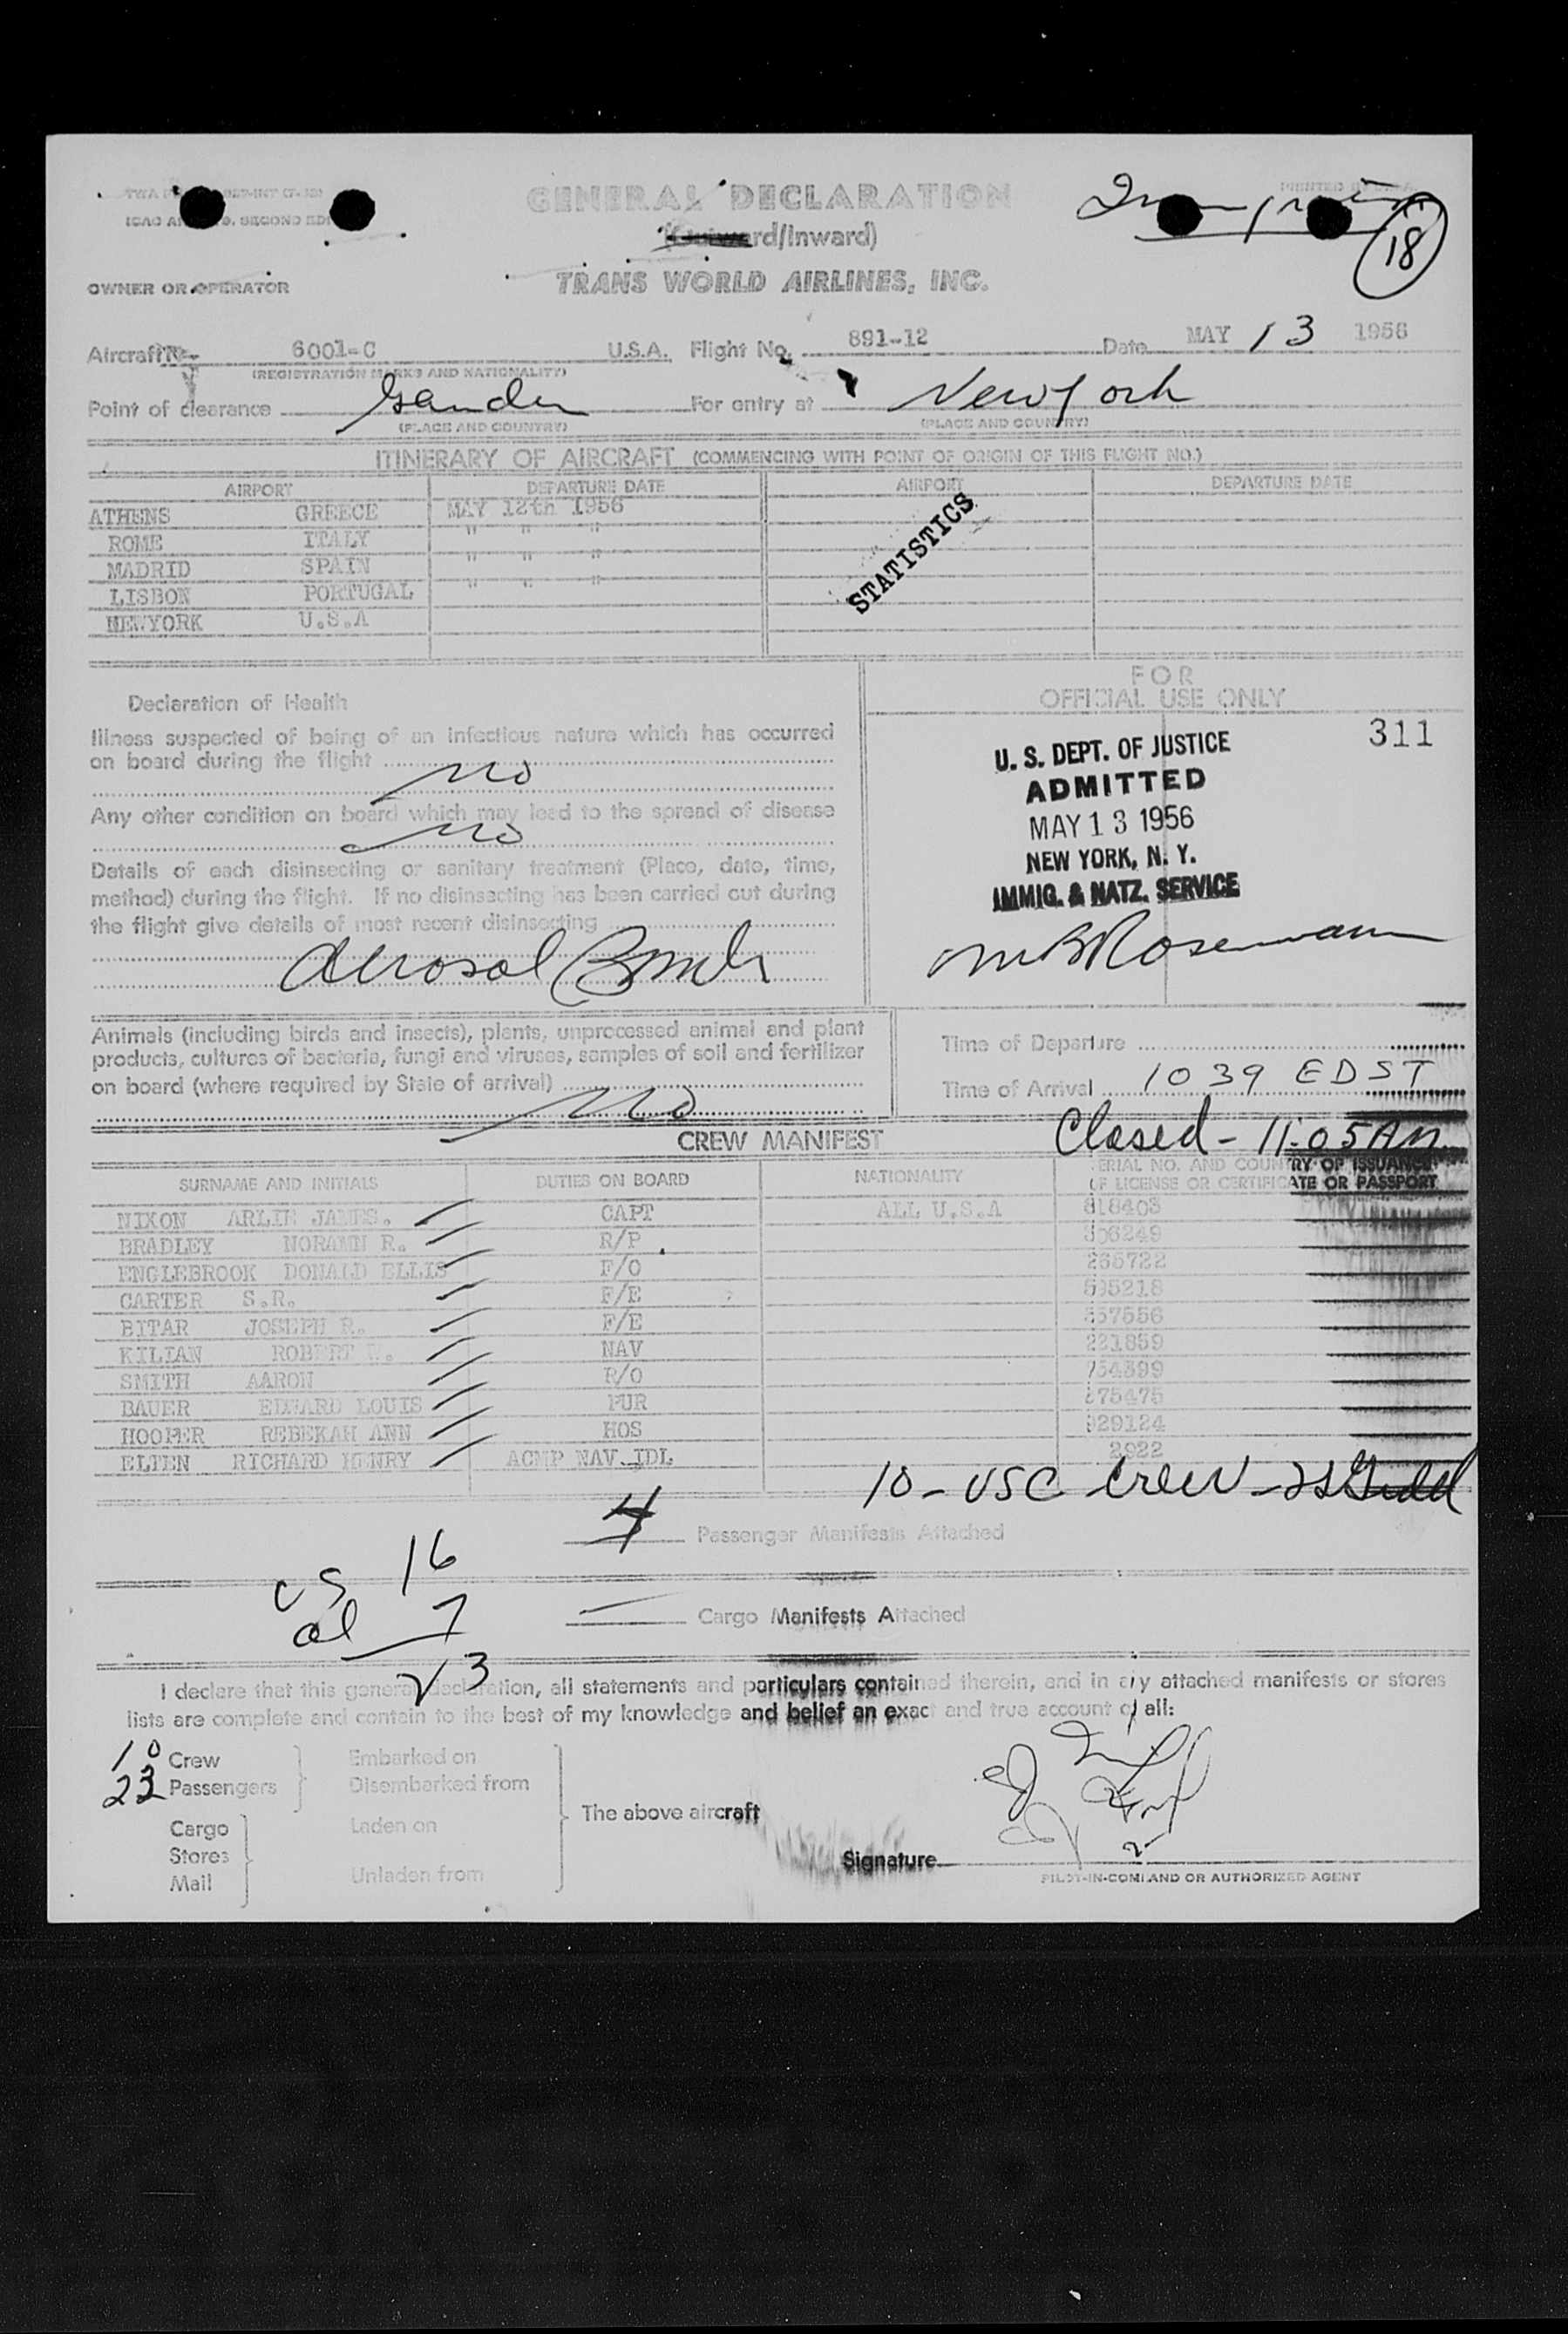 GENERAL DECLARATION
(Outward/Inward)
18
OWNER OR OPERATOR TRANS WORLD AIRLINES, INC.
Aircraft N- 6001-C U.S.A. Flight No. 891-12 Date MAY 13 1956
(REGISTRATION MARKS AND NATIONALITY)
Point of clearance Gander For entry at New York
(PLACE AND COUNTRY) (PLACE AND COUNTRY)
ITINERARY OF AIRCRAFT (COMMENCING WITH POINT OF ORIGIN OF THIS FLIGHT NO.)
AIRPORT DEPARTURE DATE AIRPORT DEPARTURE DATE
ATHENS GREECE MAY 12th 1956
ROME ITALY " " "
MADRID SPAIN " " "
LISBON PORTUGAL " " "
NEWYORK U.S.A
STATISTICS
Declaration of Health
Illness suspected of being of an infectious nature which has occurred
on board during the flight
no
Any other condition on board which may lead to the spread of disease
no
Details of each disinsecting or sanitary treatment (Place, date, time,
method) during the flight. If no disinsecting has been carried out during
the flight give details of most recent disinsecting
Aerosol Bomb
FOR
OFFICIAL USE ONLY
311
U. S. DEPT. OF JUSTICE
ADMITTED
MAY 13 1956
NEW YORK, N. Y.
IMMIG. & NATZ. SERVICE
Animals (including birds and insects), plants, unprocessed animal and plant
products, cultures of bacteria, fungi and viruses, samples of soil and fertilizer
on board (where required by State of arrival)
no
Time of Departure
Time of Arrival 1039 EDST
Closed - 11:05 AM
CREW MANIFEST
SURNAME AND INITIALS DUTIES ON BOARD NATIONALITY SERIAL NO. AND COUNTRY OF ISSUANCE
OF LICENSE OR CERTIFICATE OR PASSPORT
NIXON ARLIE JAMES. CAPT ALL U.S.A 818403
BRADLEY NORAMN R. R/P
ENGLEBROOK DONALD ELLIS F/O
CARTER S.R. F/E
BITAR JOSEPH R. F/E
KILIAN ROBERT NAV 221859
SMITH AARON R/O
BAUER EDWARD LOUIS PUR
HOOPER REBEKAH ANN HOS
ELTEN RICHARD HENRY ACMP NAV IDL 2922
10 - USC crew -
4 Passenger Manifests Attached
US 16
al 7
23
Cargo Manifests Attached
I declare that this general declaration, all statements and particulars contained therein, and in any attached manifests or stores
lists are complete and contain to the best of my knowledge and belief an exact and true account of all:
10 Crew Embarked on
23 Passengers Disembarked from
The above aircraft
Cargo Laden on
Stores
Mail Unladen from
Signature
PILOT-IN-COMMAND OR AUTHORIZED AGENT